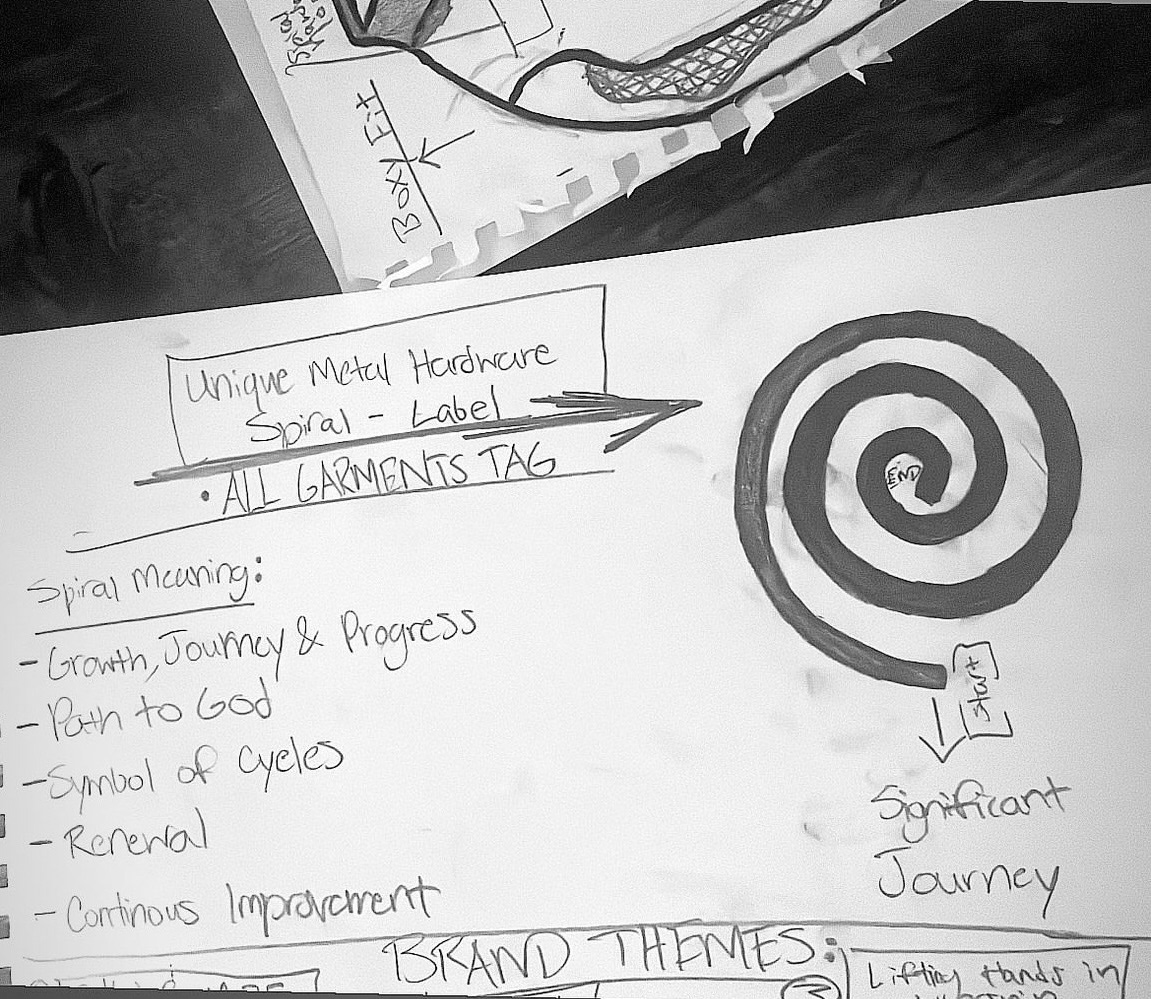 BOXY Fit
Unique Metal Hardware
Spiral - Label
• ALL GARMENTS TAG
END
Spiral Meaning:
- Growth, Journey & Progress
- Path to God
- Symbol of Cycles
- Renewal
- Continous Improvement
Start
Significant
Journey
BRAND THEMES:
Lifting Hands in